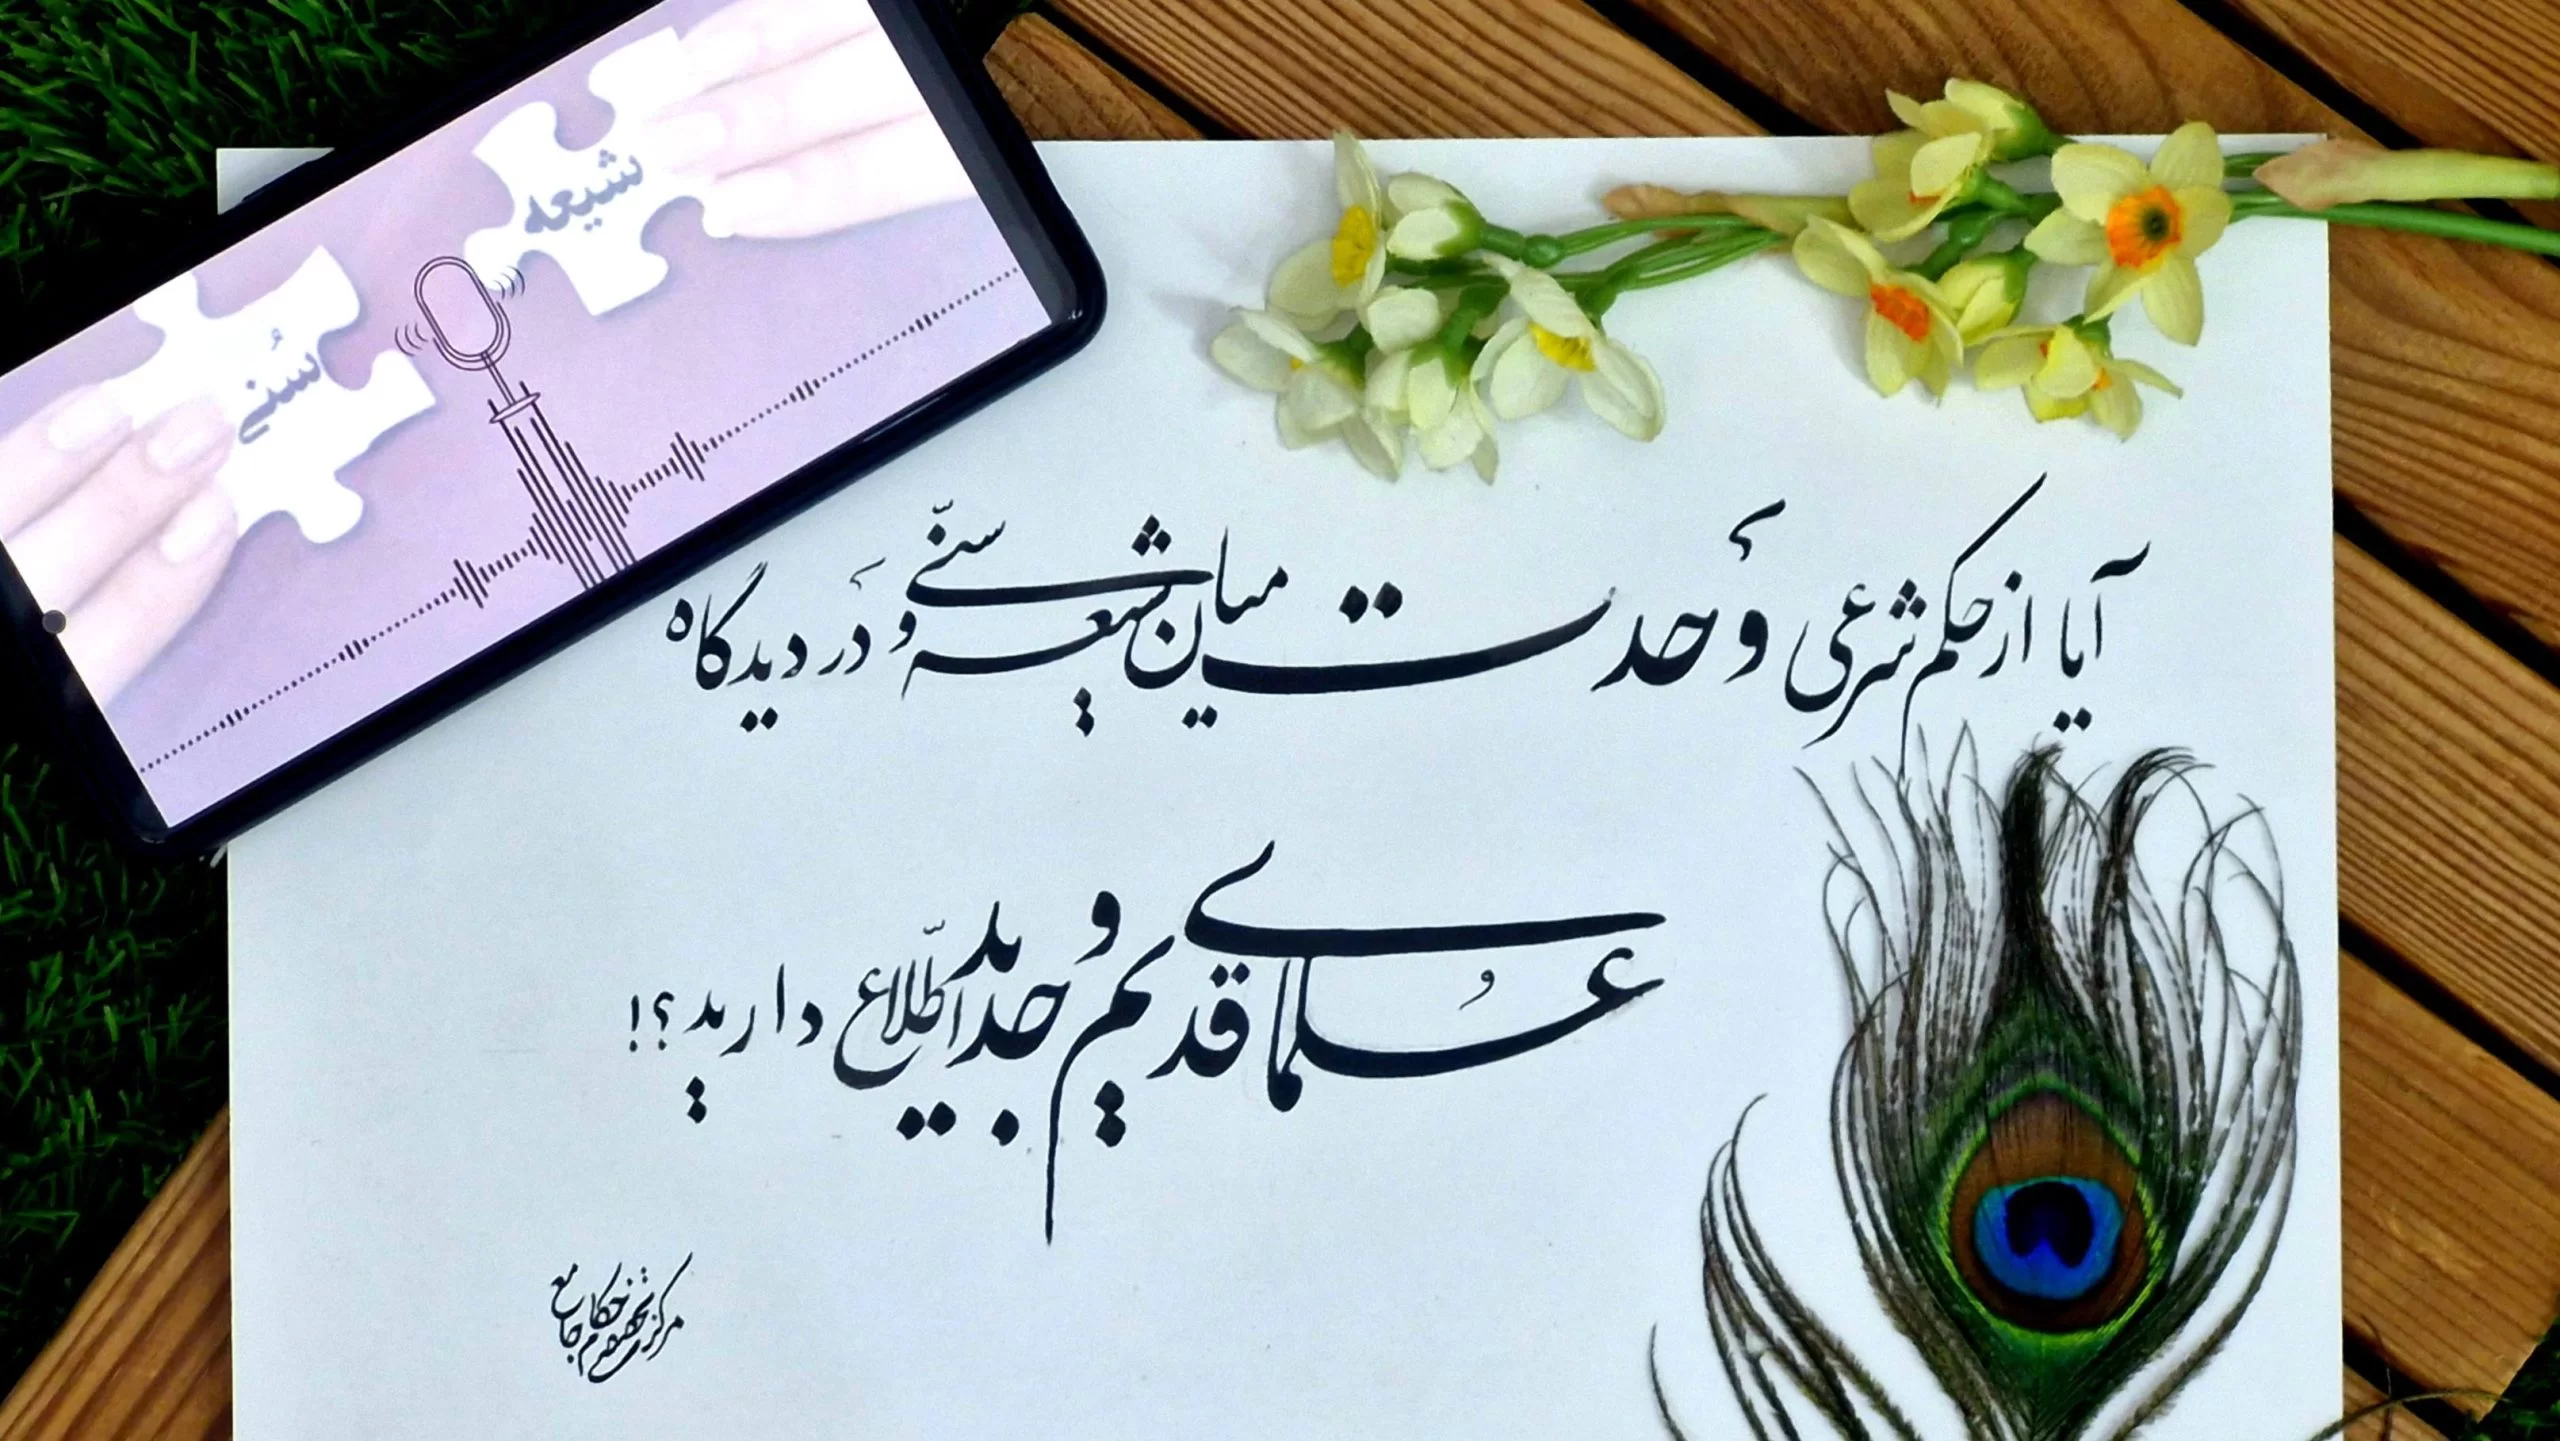 شیعه
سُنی
آیا از حکم شرعی وَحدت میان شیعه و سنّی دَر دیدگاه
عُلمای قدیم و جدید اطّلاع دارید؟!
مرکز تخصصی احکام جامع